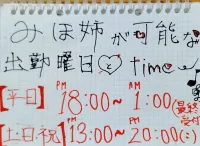 みほ姉が可能な
出勤曜日♡と time
【平日】PM 18:00～AM 1:00(最終受付)
【土・日・祝】PM 13:00～20:00(:)